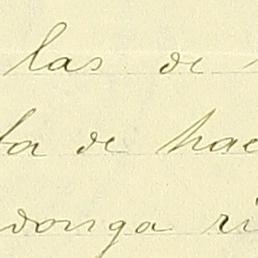 las de
la de hac
donga ri